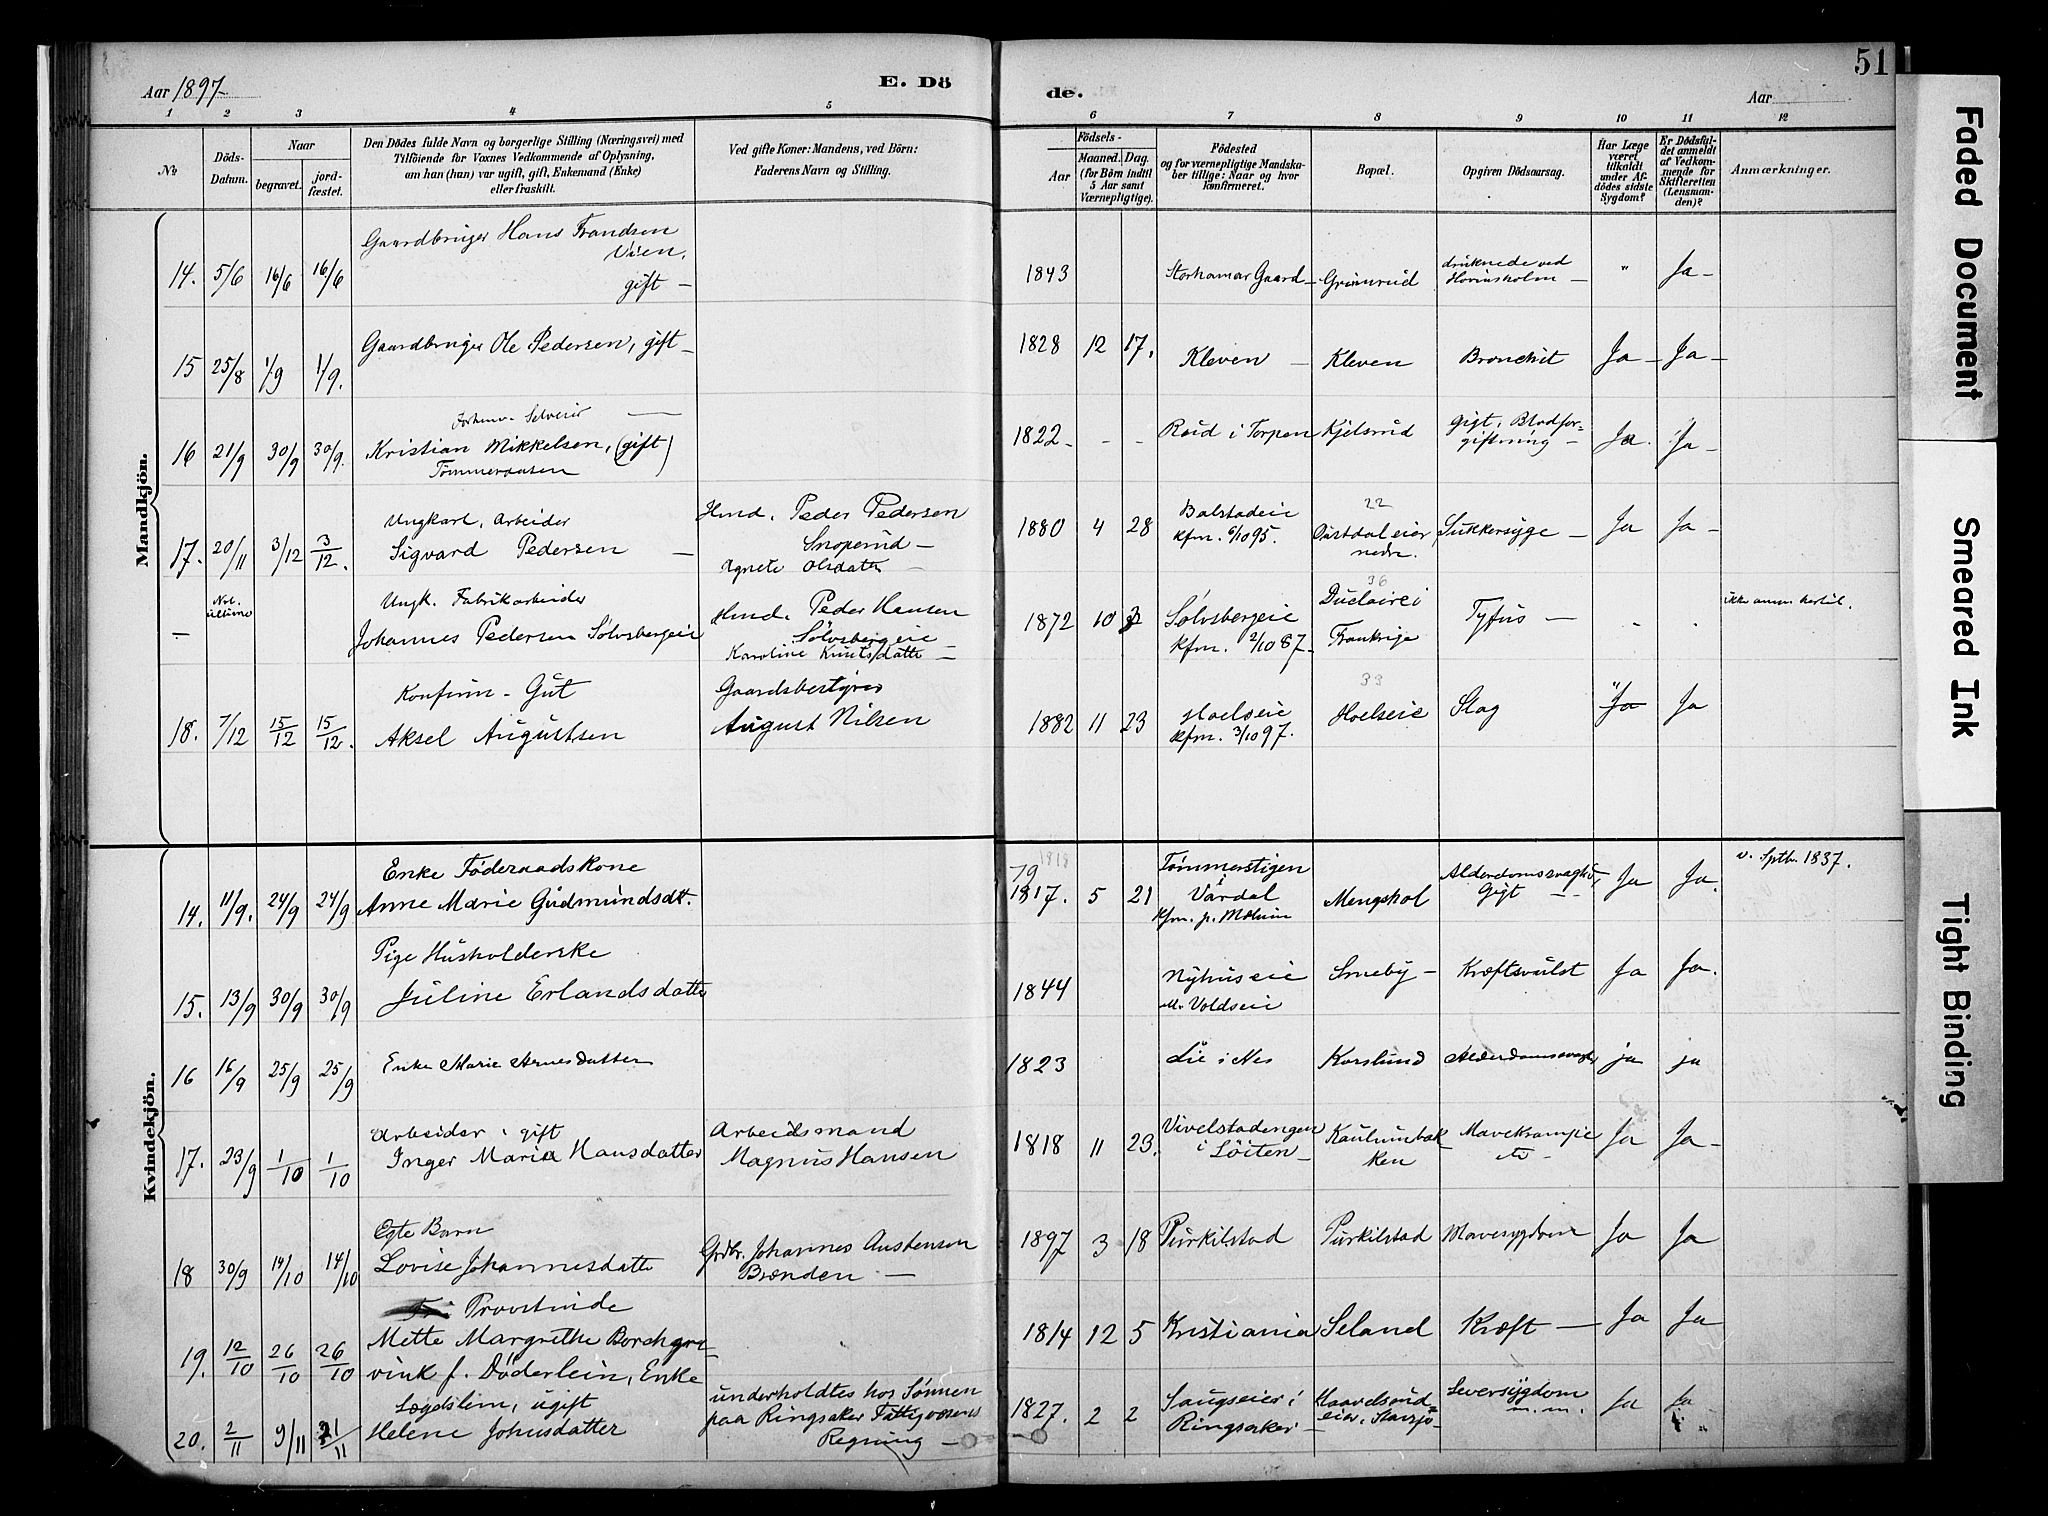 Aar 1897
E. Dö
de.
Aar
51
1 2 3 4 5 6 7 8 9 10 11 12
No
Döds-Datum.
Naar
begravet.
jordfæstet.
Den Dödes fulde Navn og borgerlige Stilling (Næringsvei) med
Tilföiende for Voxnes Vedkommende af Oplysning,
om han (hun) var ugift, gift, Enkemand (Enke)
eller fraskilt.
Ved gifte Koner: Mandens, ved Börn:
Faderens Navn og Stilling.
Födsels-
Aar
Maaned. Dag.
(for Börn indtil
5 Aar samt
Værnepligtige).
Födested
og for værnepligtige Mandska-
ber tillige: Naar og hvor
konfirmeret.
Bopæl.
Opgiven Dödsaarsag.
Har Læge
været
tilkaldt
under Af-
dödes sidste
Sygdom?
Er Dödsfal-
det anmeldt
af Vedkom-
mende for
Skifteretten
(Lensman-
den)?
Anmærkninger.
Mandkjön.
Gaardbruger Hans Frandsen
Vien,
14. 5/6 16/6 16/6 gift - 1843 Storhamar Gaard - Grimsrud druknede ved
Hovinsholm - " Ja -
Gaardbruger Ole Pedersen, gift -
15 25/8 1/9 1/9. 1828 12 17. Kleven - Kleven Bronchit Ja - Ja -
16 21/9 30/9 30/9. Kristian Mikkelsen, (gift)
Tømmeraasen
1822 - - - Roud i Torpen Kjelsrud Gigt, Blodfor-
giftning - Ja. Ja -
Ungkarl, Arbeider
17. 20/11 3/12 3/12. Sigvard Pedersen -
Hmd. Peder Pedersen
Snoperud -
Agnete Olsdatter -
1880 4 28 Balstadeie
kfm. 6/10 95.
22
nedre.
Sukkersyge - Ja Ja -
- Nov.
ultimo
Ungk. Fabrikarbeider
Johannes Pedersen Sølvsbergeie
Hmd. Peder Hansen
Sølvsbergeie
Karoline Knutsdatter -
1872 10 2 Sølvsbergeie
kfm. 2/10 87.
36
Frankrige
Tyfus -
Konfirm - Gut
18. 7/12 15/12 15/12. Aksel Augustsen
Gaardsbestyrer
August Nilsen
1882 11 23 Hoelseie
kfm. 3/10 97.
33
Hoelseie Slag " Ja Ja
Kvindekjön.
Enke Føderaadskone
14. 11/9. 24/9 24/9 Anne Marie Gudmundsdt.
79 1818
1817. 5 21 Tømmerstigen
i
Vardal
Mengshol Alderdomssvaghd,
Gigt - Ja Ja.
v. Sptb. 1837.
Pige Husholderske
15. 13/9 30/9 30/9 Juline Erlandsdatter
1844 Nyhuseie
ell. Voldseie
Smeby - Kræftsvulst Ja Ja.
16 16/9 25/9 25/9 Enke Marie Arnesdatter
1823 Lie i Nes Korslund Alderdomssvaghd ja ja
Arbeider, gift
17. 23/9 1/10 1/10 Inger Maria Hansdatter
Arbeidsmand
Magnus Hansen
1818 11 23. Vivelstadengen
i Löiten -
Kaulumbak
ken
Mavekrampe
Ja Ja -
Egte Barn
18 30/9 14/10 14/10 Lovise Johannesdatte
Grdbr. Johannes Austenson
Brenden -
1897 3 18 Purkilstad Purkilstad Mavesygdom Ja Ja
Provstinde
19. 12/10 26/10 26/10 Mette Margrethe Borchgre-
vink f. Døderlein, Enke
1814 12 5 Kristiania Seland Kræft - Ja Ja
Lægdslem, ugift
20. 2/11 9/11 21/11 Helene Johnsdatter
underholdtes hos Sønnen
paa Ringsaker Fattigvæsens
Regning -
1827. 2 2 Saugseier i
Ringsaker -
Haavelsrud
eier, Stavsjø-
Leversygdom
m.m. Ja Ja
Faded Document
Smeared Ink
Tight Binding